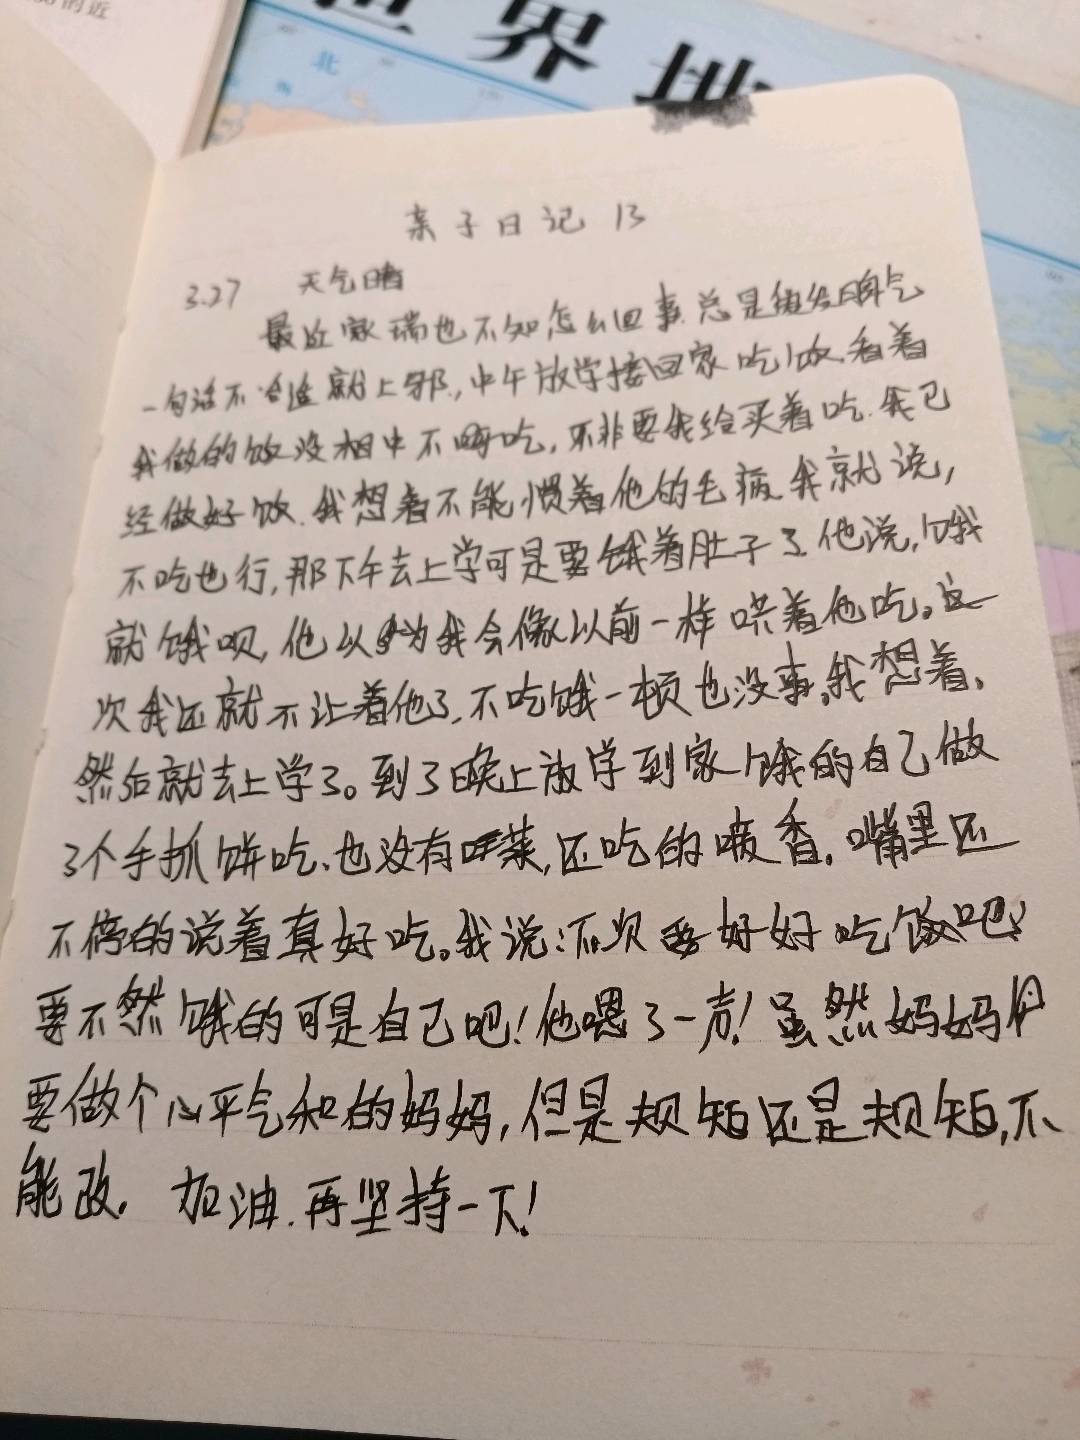 的近
世界地
北
亲子日记 13
3.27 天气晴
最近家瑞也不知怎么回事.总是发脾气
一句话不合适就上邪,中午放学接回家吃饭.看着
我做的饭没相中不吃,不非要我给买着吃.我已
经做好饭.我想着不能惯着他的毛病.我就说,
不吃也行,那下午去上学可是要饿着肚子了.他说,饿
就饿呗,他以为我会像以前一样哄着他吃。这
次我还就不让着他了.不吃饿一顿也没事。我想着.
然后就去上学了。到了晚上放学到家饿的自己做
了个手抓饼吃、也没有菜,还吃的喷香.嘴里还
不停的说着真好吃。我说:下次要好好吃饭吧!
要不然饿的可是自己吧!他嗯了一声!虽然妈妈
要做个心平气和的妈妈,但是规矩还是规矩,不
能改. 加油.再坚持一下!